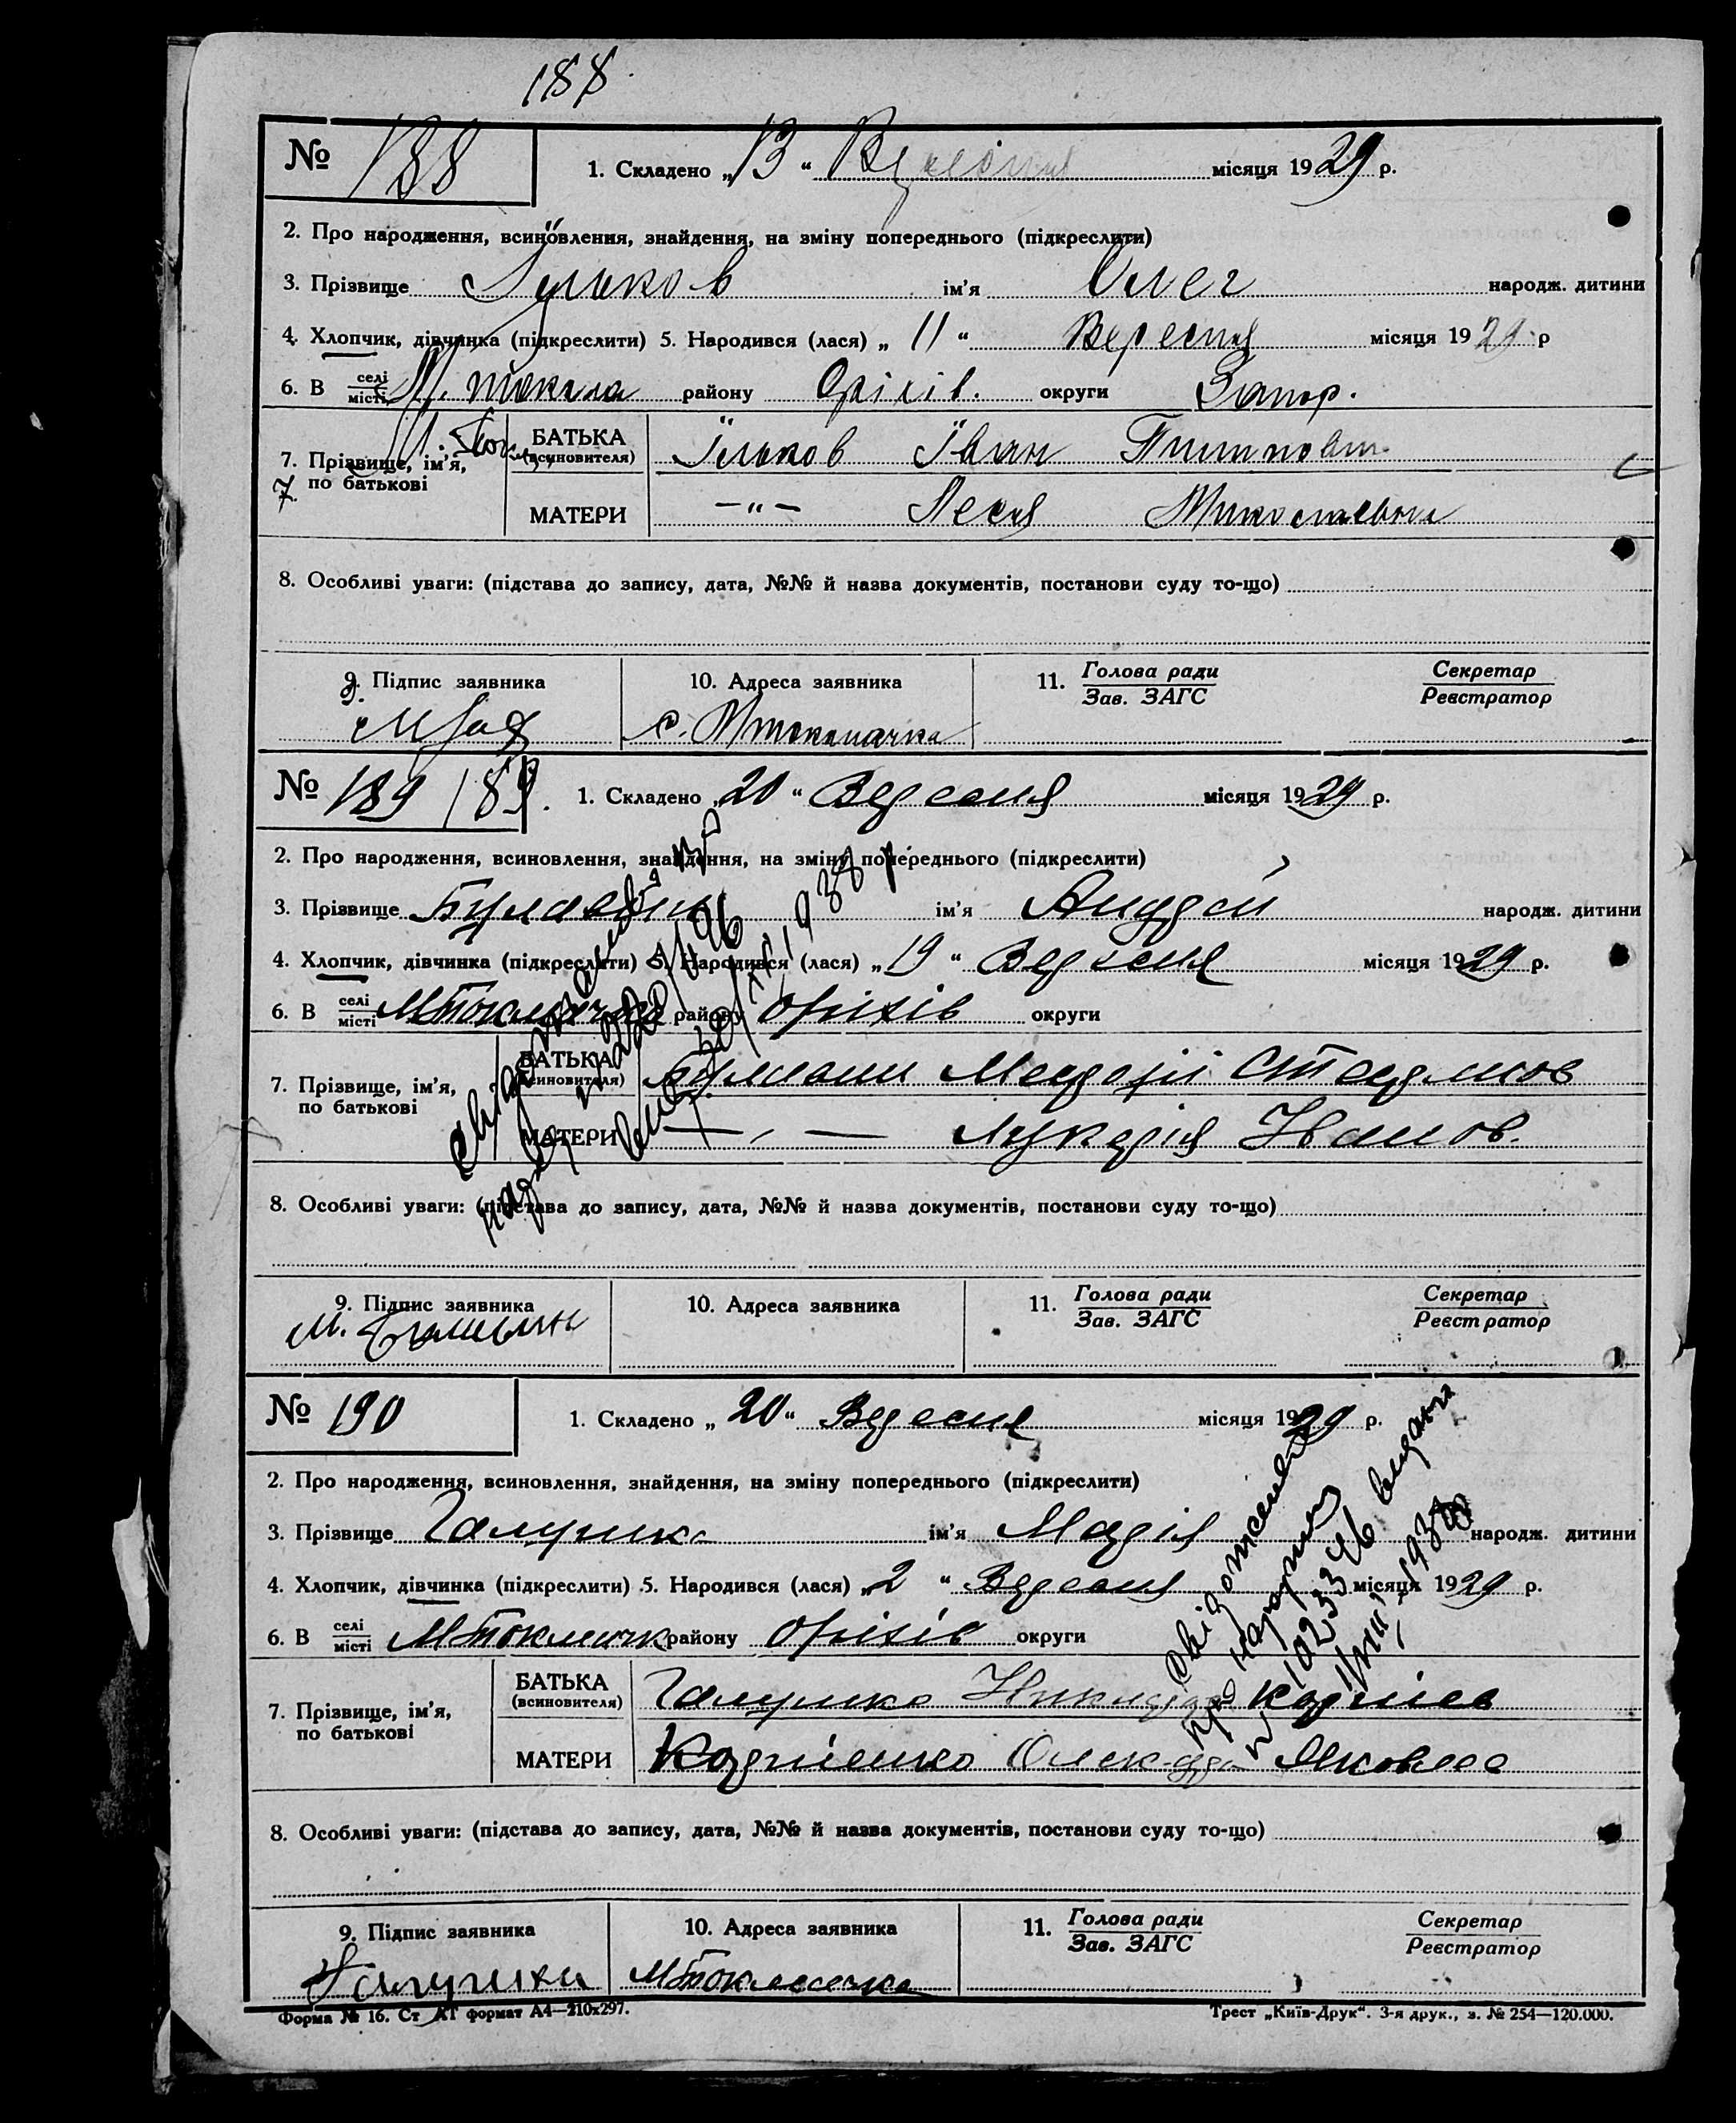 188.
№ 188 1. Складено „13“ Вересня місяця 1929 р.
2. Про народження, всиновлення, знайдення, на зміну попереднього (підкреслити)
3. Прізвище Ільков ім'я Олег народж. дитини
4. Хлопчик, дівчинка (підкреслити) 5. Народився (лася) „11“ Вересня місяця 1929 р
6. В селі/місті М. токмач району Оріхів. округи Запор.
7. Прізвище, ім'я, по батькові
БАТЬКА (всиновителя) Їльков Їван
МАТЕРИ —„— Леся
8. Особливі уваги: (підстава до запису, дата, №№ й назва документів, постанови суду то-що)
9. Підпис заявника 10. Адреса заявника 11. Голова ради Секретар
Зав. ЗАГС Реєстратор
с. Мтокмачка
№ 189 189. 1. Складено „20“ Вересня місяця 1929 р.
2. Про народження, всиновлення, знайдення, на зміну попереднього (підкреслити)
3. Прізвище ім'я Андрей народж. дитини
4. Хлопчик, дівчинка (підкреслити) 5. Народився (лася) „19“ Вересня місяця 1929 р.
6. В селі/місті МТокмачка району Оріхів округи
7. Прізвище, ім'я, по батькові
БАТЬКА (всиновителя)
МАТЕРИ — „ — Лукерія Иванов.
8. Особливі уваги: (підстава до запису, дата, №№ й назва документів, постанови суду то-що)
9. Підпис заявника 10. Адреса заявника 11. Голова ради Секретар
Зав. ЗАГС Реєстратор
М.
№ 190 1. Складено „20“ Вересня місяця 1929 р.
2. Про народження, всиновлення, знайдення, на зміну попереднього (підкреслити)
3. Прізвище Галушка ім'я Марія народж. дитини
4. Хлопчик, дівчинка (підкреслити) 5. Народився (лася) „2“ Вересня місяця 1929 р.
6. В селі/місті МТокмачк району Оріхів округи
свідоцтво
про народження
№ 1023346 видано
1938
7. Прізвище, ім'я, по батькові
БАТЬКА (всиновителя) Галушко Корніев
МАТЕРИ Корніенко Яковлев
8. Особливі уваги: (підстава до запису, дата, №№ й назва документів, постанови суду то-що)
9. Підпис заявника 10. Адреса заявника 11. Голова ради Секретар
Зав. ЗАГС Реєстратор
Галушка МТокмачка
Форма № 16. Ст АТ формат А4—210х297. Трест „Київ-Друк“. 3-я друк., з. № 254—120.000.